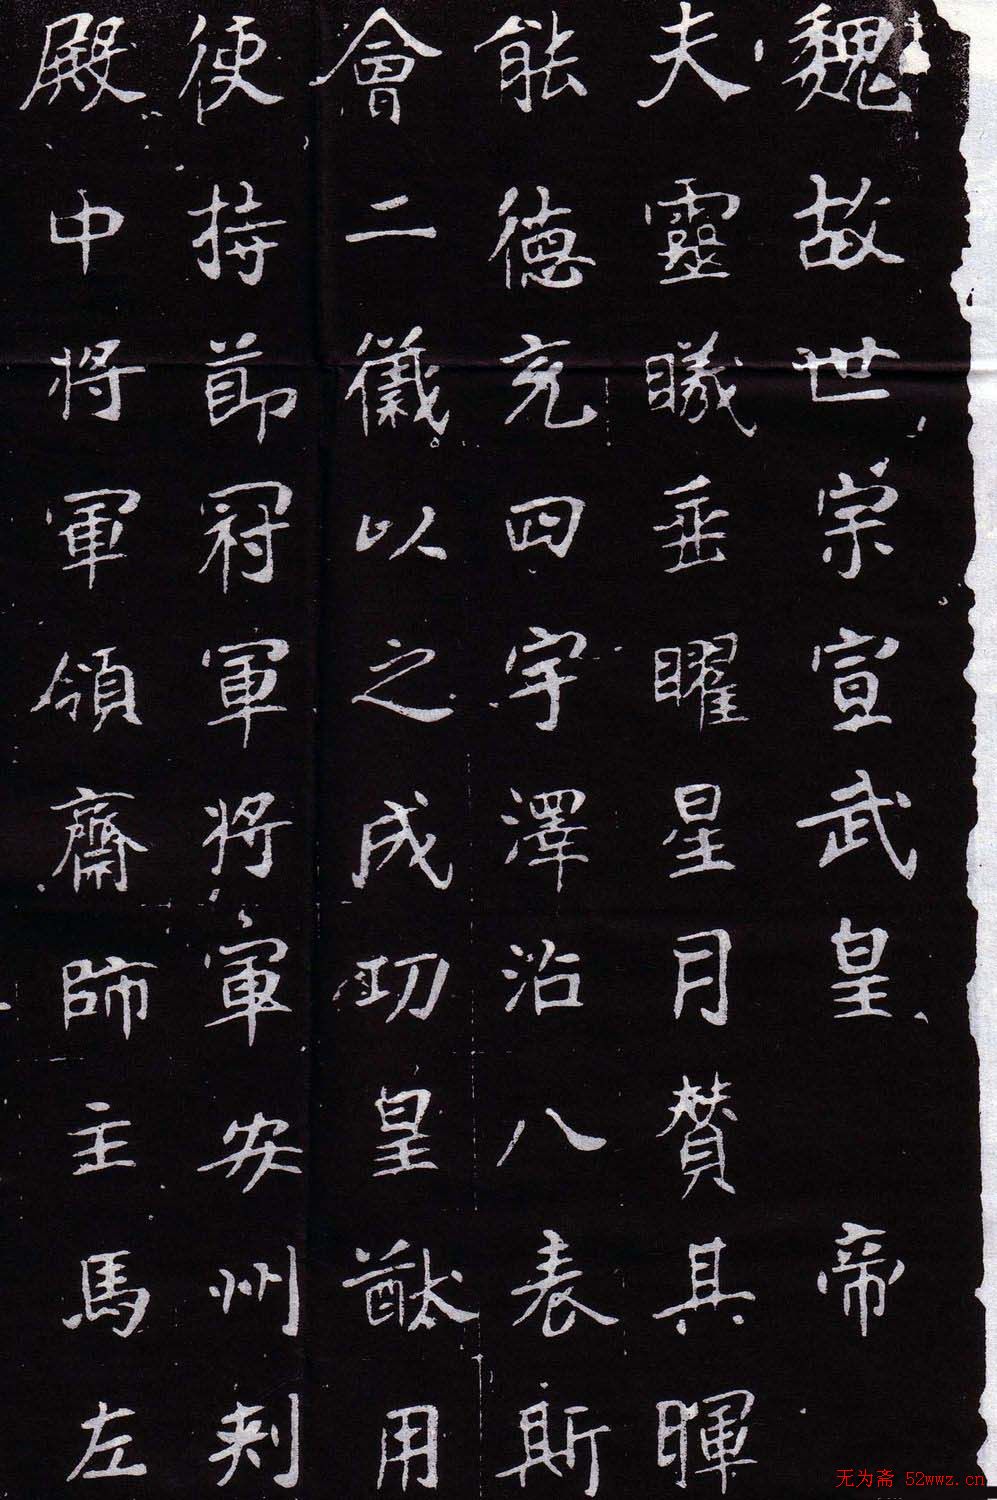 魏故世宗宣武皇帝
夫靈曦垂曜星月賛其暉
能德充四宇澤沿八表斯
會二儀以之成功皇猷用
使持節冠軍將軍安州刾
殿中将軍領齋師主馬左
无为斋 52wwz.cn